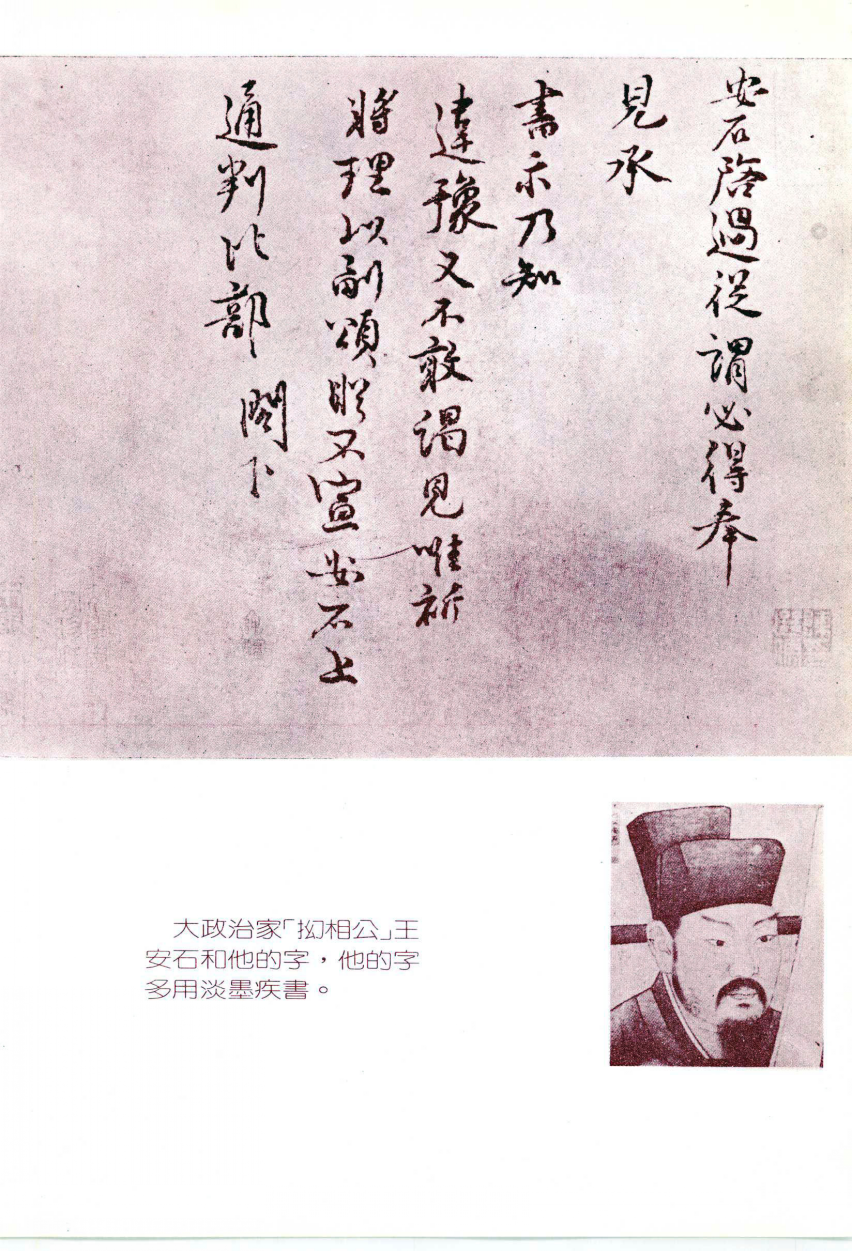 安石啓過從謂必得奉
見承
書示乃知
違豫又不敢謁見唯祈
將理以副頌不宣安石上
通判比部 閣下
大政治家「拗相公」王
安石和他的字，他的字
多用淡墨疾書。